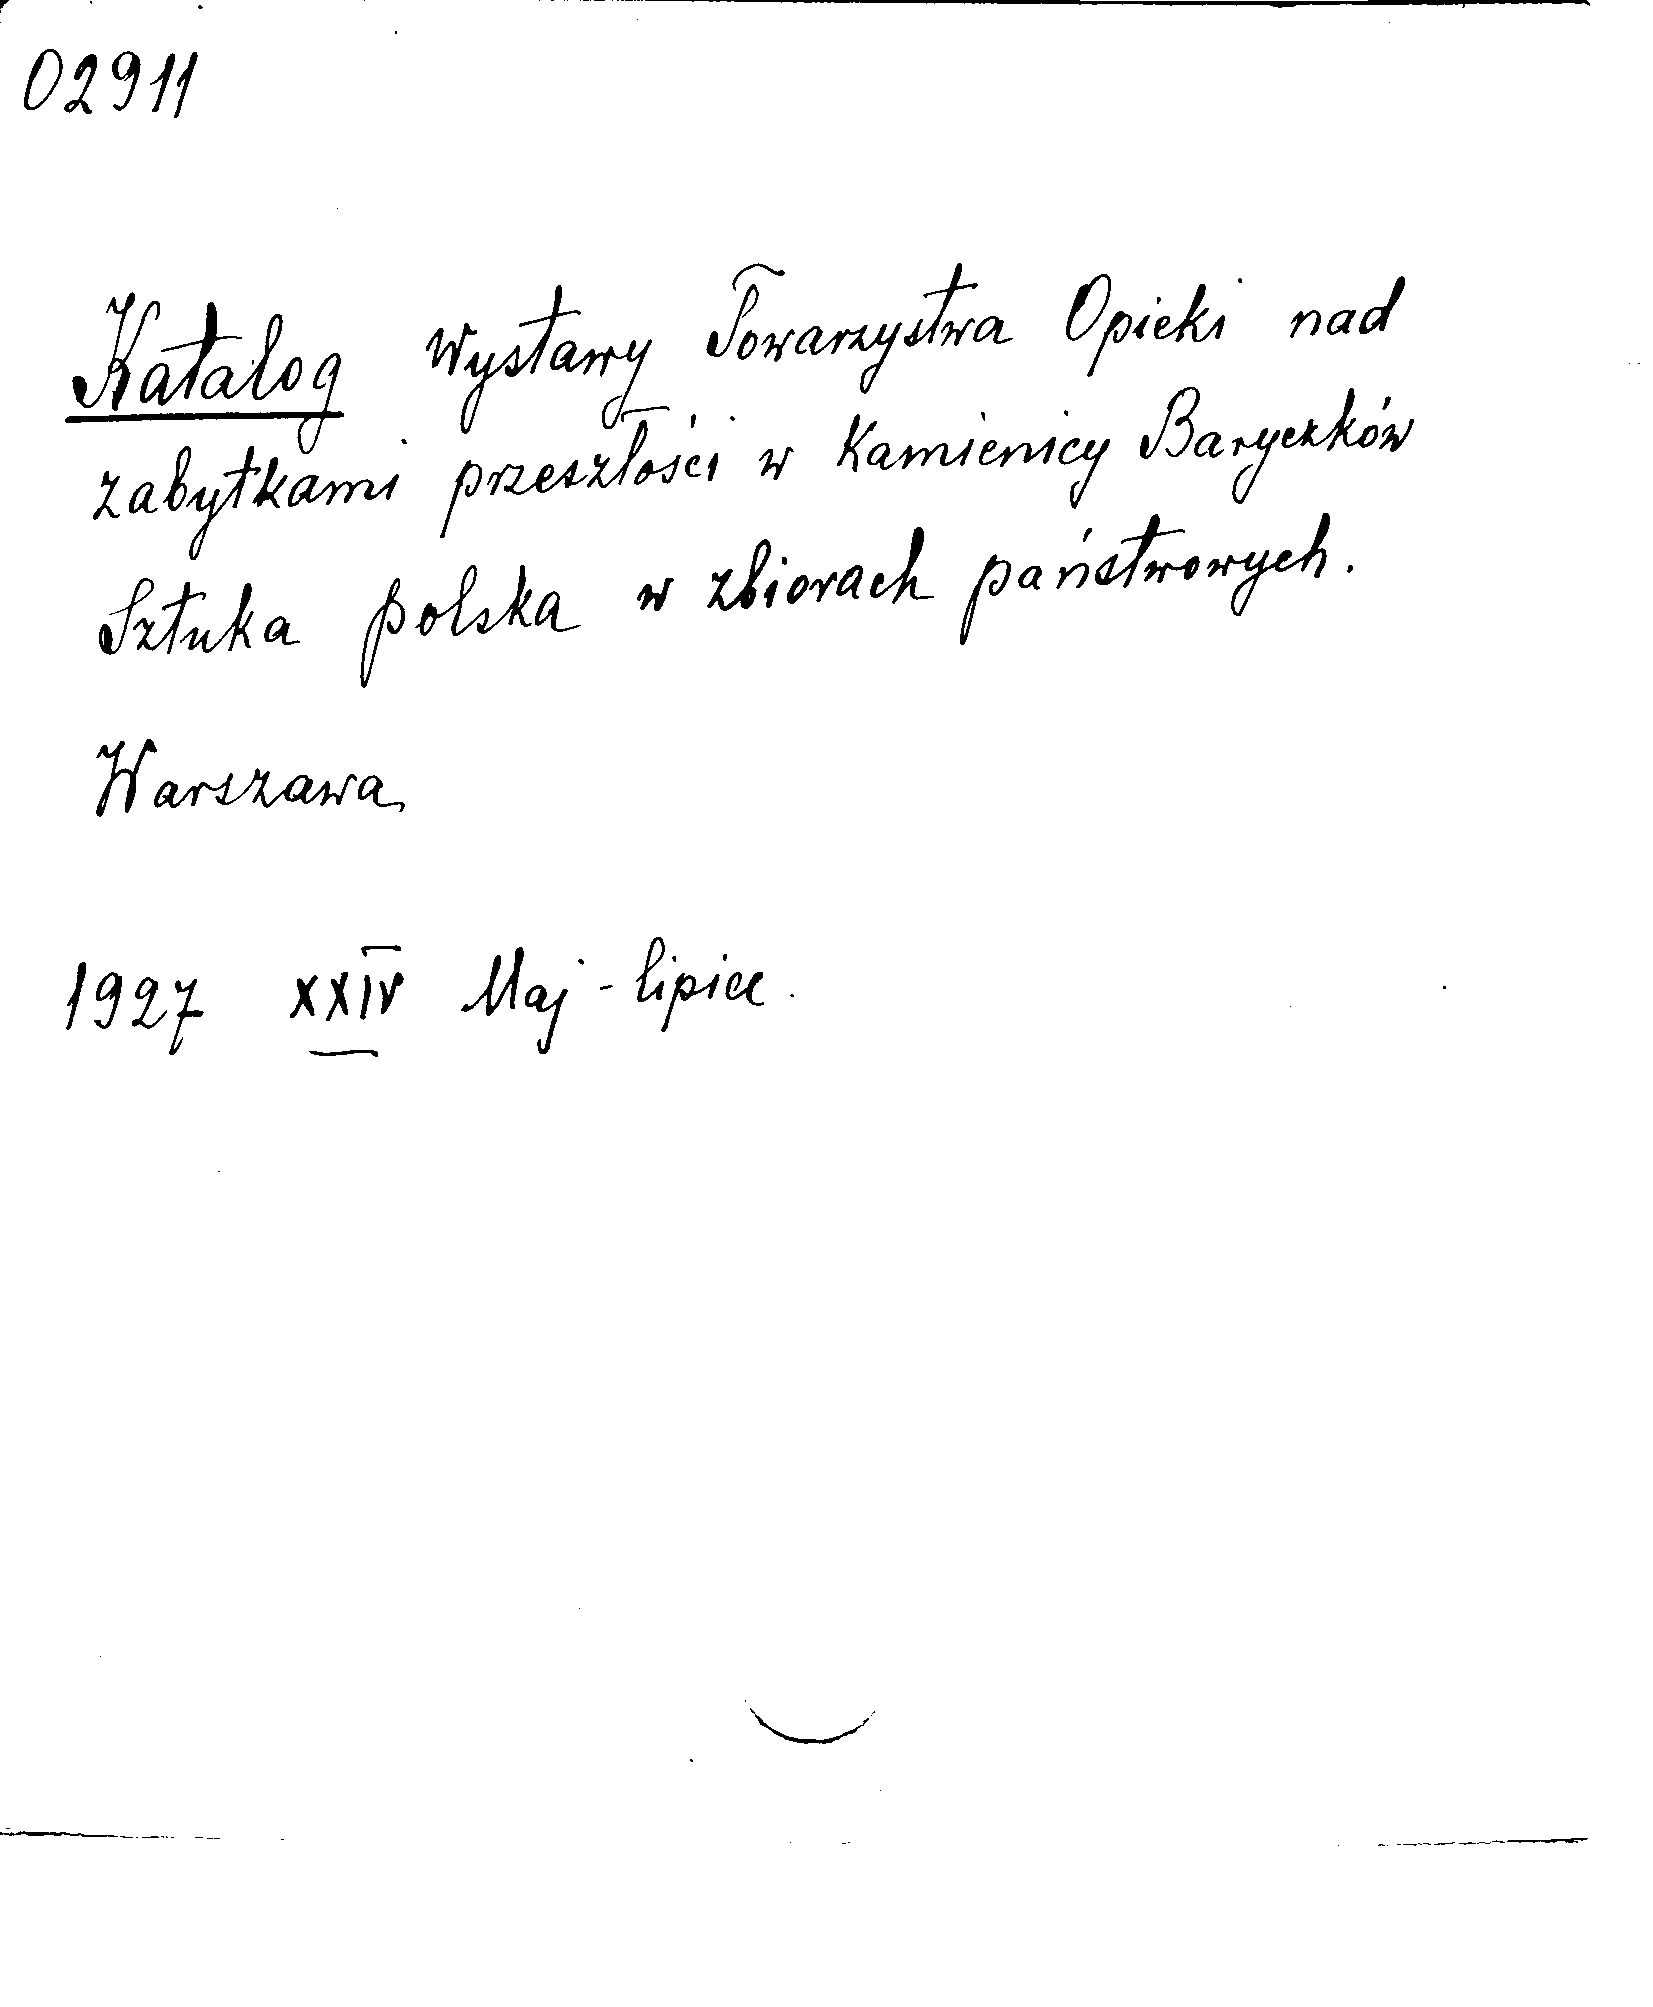 02911
Katalog Wystawy Towarzystwa Opieki nad
zabytkami przeszłości w Kamienicy Baryczków
Sztuka polska w zbiorach państwowych.
Warszawa
1927 XXIV Maj - lipiec